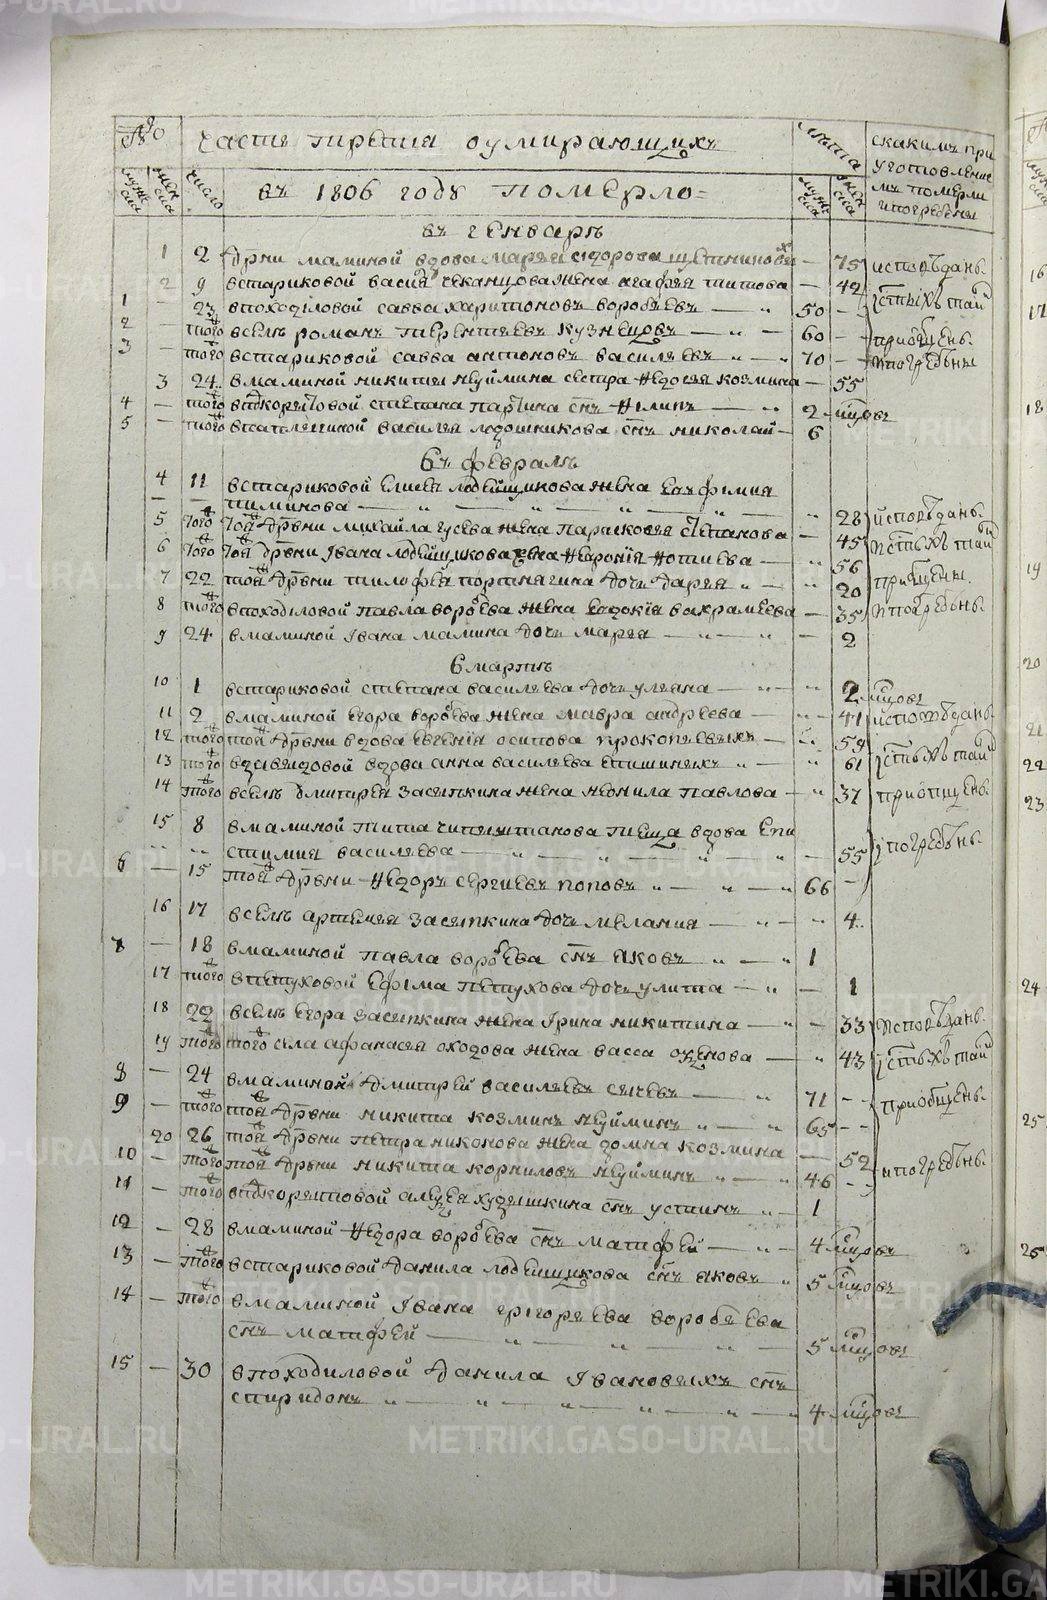 № часть третия о умирающихъ лѣта скакимъ при
уготовление
мужеска женска число въ 1806 году померло мужеска женска мъ померли
и погребены
въ генварѣ
1 2 дрвни маминой вдова марья сидорова — 75 исповѣданы
2 9 встариковой васи чеканцова жена агафья титова — 42 істыхъ таи
1 — 23 впоходіловой савва харитоновъ воробьевъ — 50 —
2 — того вселѣ романъ терентьевъ кузнецовъ — 60 — приобщены
3 — того встариковой савва антоновъ васильевъ — 70 — и погребены
3 24 вмаминой никиты неуймина сестра федосья козмина — 55
4 — того вподкорытовой степана паргина снъ филипъ — 2 мцовъ
5 — того василья лодошникова снъ николай — 6
въ февралѣ
4 11 встариковой елисѣя лобейщикова жена евфимия
— — тиминова — 28 исповѣданы
5 того той дрвни михайла гусева жена парасковья степанова — 45 истыхъ таи
6 того той дрвни івана лобейщикова жена февронія фотиева — 56
7 22 той дрвни тимофея портнягина дочь дарья — 20 приобщены
8 того впоходіловой павла воробьева жена евдокія вахрамеева — 35 и погребены
9 24 вмаминой івана мамина дочь марья — 2
в мартѣ
10 1 встариковой степана васильева дочь ульяна — 2 мцовъ
11 2 вмаминой егора воробьева жена мавра андреева — 41 исповѣданы
12 того той дрвни вдова евгенія осипова прокопьевыхъ — 59
13 того вдова анна васильева епишиныхъ — 61 істыхъ таи
14 того вселѣ дмитрея засыпкина жена неонила павлова — 37 приопщены
15 8 вмаминой тита теща вдова епи
стимия васильева — 55 і погребены
6 — 15 той дрвни федоръ сергиевъ поповъ — 66 —
16 17 вселѣ артемья засыпкина дочь мелания — 4
7 — 18 вмаминой павла воробьева снъ яковъ — 1
17 того впетуховой ефіма петухова дочь улита — 1
18 22 вселѣ егора засыпкина жена ірина никитина — 33 исповѣданы
19 того того села афанасья оходова жена васса — 43 істыхъ таи
8 — 24 вмаминой дмитрей васильевъ сычевъ — 71 —
9 — того той дрвни никита козминъ неуйминъ — 65 — приобщены
20 26 той дрвни петра никонова жена домна козмина — 52
10 — того той дрвни никита корниловъ неуйминъ — 46 — и погребены
11 — того вподкорытовой алексея худышкина снъ устинъ — 1
12 — 28 вмаминой федора воробьева снъ матфей — 4 мцовъ
13 — того встариковой данила лобейщикова снъ яковъ — 5 мцовъ
14 — того вмаминой івана григорьева воробьева
снъ матфей — 5 мцовъ
15 — 30 впоходиловой данила івановыхъ снъ
спиридонъ — 4 мцовъ
16
17
18
19
20
21
22
23
24
25
26
METRIKI.GASO-URAL.RU